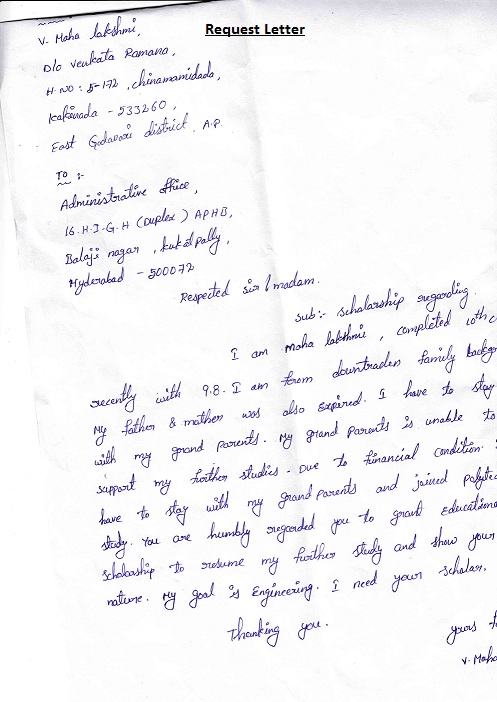 Request Letter
V. Maha lakshmi,
D/o Venkata Ramana,
H.NO : 5-172, chinamamidada,
Kakinada - 533260,
East Godavari district, A.P.
TO :-
Administrative office,
16.H.I.G.H (Duplex) APHB,
Balaji nagar, kukatpally,
Hyderabad - 500072
Respected sir / madam.
sub:- scholarship regarding.
I am Maha lakshmi, completed 10th c
recently with 9.8. I am form downtraden family backg
My father & mother was also expired. I have to stay
with my grand parents. My grand parents is unable to
support my further studies. Due to financial condition.
have to stay with my grand parents and joined polytec
study. You are humbly regarded you to grant educationa
scholaaship to resume my further study and show your
nature. My goal is Engineering. I need your scholar.
Thanking you.
yours
V. Maha